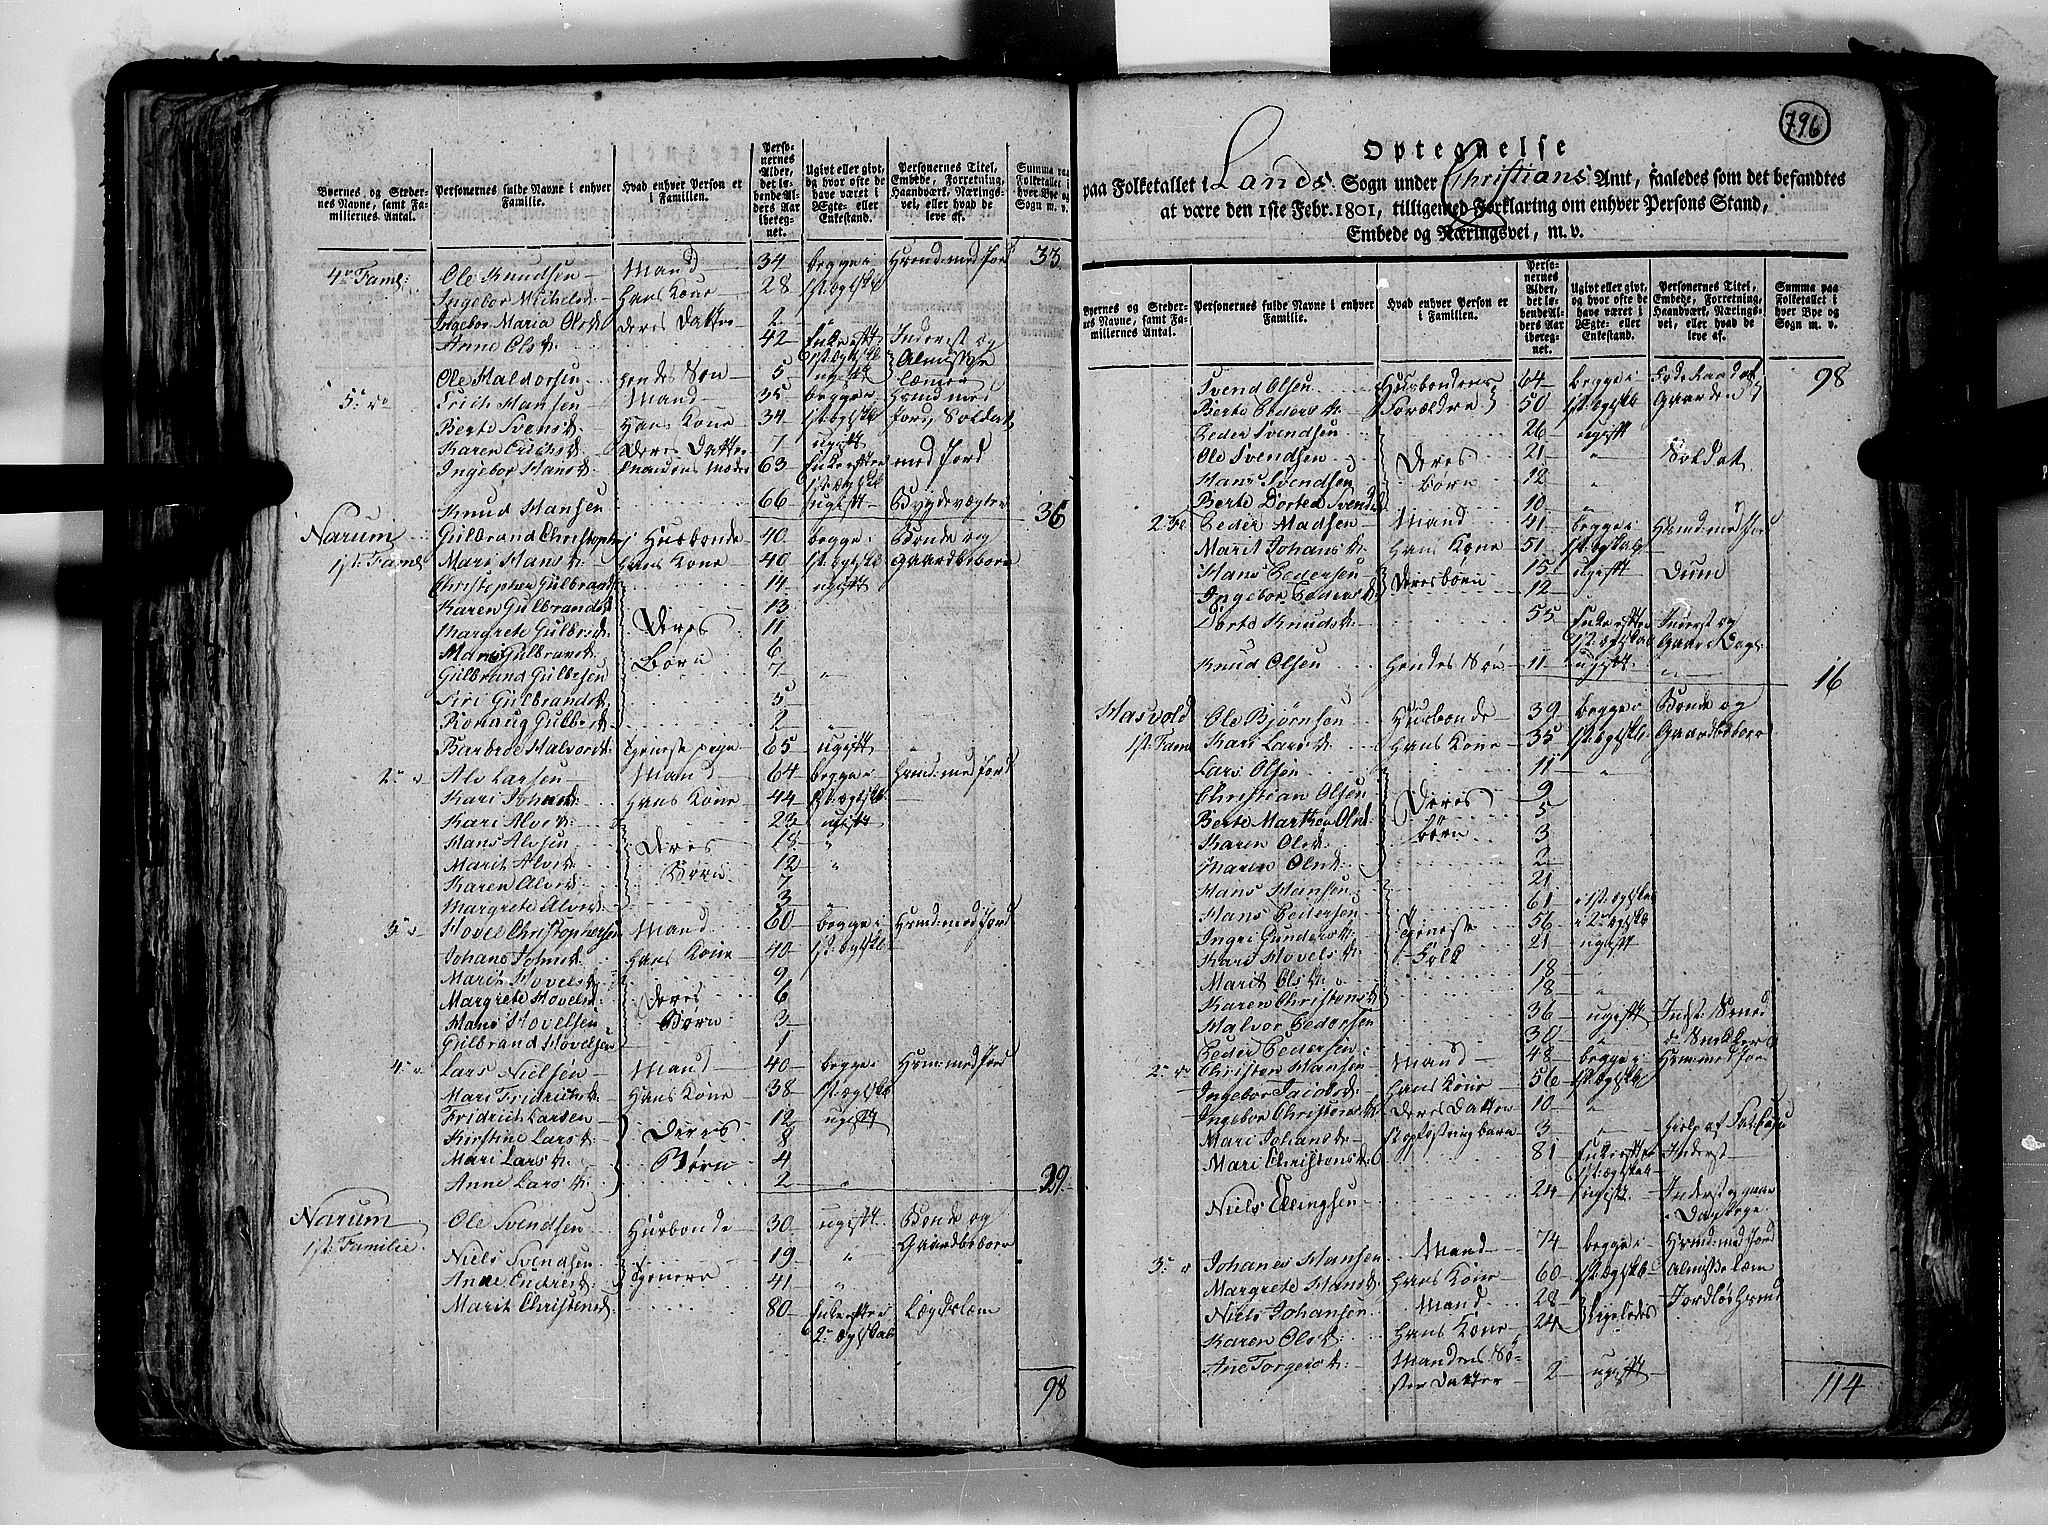 Byernes og Steder-
nes Navne, samt Fa-
miliernes Antal.
Personernes fulde Navne i enhver
Familie.
Hvad enhver Person er
i Familien.
Perso-
nernes
Alder,
det lø-
bende Al-
ders Aar
ibereg-
net.
Ugivt eller givt,
og hvor ofte de
have været i
Ægte- eller
Enkestand.
Personernes Titel,
Embede, Forretning,
Haandværk, Nærings-
vei, eller hvad de
leve af.
Summa paa
Folketallet i
hver Bye og
Sogn m. v.
4de Faml: Ole Knudsen Mand 34 begge i Huusmd: med Jord 33
Ingebor Michelsd. hans Kone 28 1st. egtsk
Ingebor Maria Olsd. deres Datter 2 "
Anne Olsd. 42 Enke eftr Inderst og
1st. ægtsk Almisse
Ole Haldorsen hendes Søn 5 ugift lemer
5. do Erich Hansen Mand 35 begge i Huusmd med
Berte Svensd. hans Kone 34 1st. egtsk Jord, Soldat
Karen Erichsd. deres Datter 7 ugift
Ingebor Hansd. Mandens Moder 63 Enke eftr med Jord
1st. ægtsk
Knud Hansen 66 ugift Bygdevægter 36
Narum Gulbrand Christophers Husbonde 40 begge i Bonde og
1st. Faml Mari Hansd. hans Kone 40 1st. egtsk Gaardbeboer
Christopher Gulbrands 14 ugift
Karen Gulbrandsd 13
Margrete Gulbrsd. Deres 11
Gulbrandsd. Børn 6
Gulbrand Gulbrsen 7 "
Siri Gulbrandsd. 5
Gulbrsd. 2 "
Barbroe Halvorsd. tieneste pige 65 ugift "
2. " Alv Larsen Mand 64 begge i Huusmd: med Jord
Kari Johnsd. hans Kone 44 1st. egtsk
Kari Alvesd. 23 ugift
Hans Alvsen Deres 18 "
Marit Alvesd. Børn 12 "
Karen Alvesd. 7
Margrete Alvesd. 3 "
3. " Hovel Christophersen Mand 60 begge i Huusmd: med Jord
Johans Tomsd. hans Kone 40 1st. egtsk
Marit Hovelsd. 9
Margrete Hovelsd. Deres 6
Hans Hovelsen Børn 3
Gulbrand Hovelsen 1
4. " Lars Nielsen Mand 40 begge i Huusm: med Jord
Mari Fridrichsd. hans Kone 38 1st. egtsk
Fridrich Larsen 12 ugift
Kirstine Larsd. Deres 8
Mari Larsd. Børn 4
Anne Larsd. 2 " 29
Narum Ole Svendsen Husbonde 30 ugift Bonde og
1st. Familie. Gaardbeboer
Niels Svendsen 19 "
Anne Endresd. tienere 41 "
Marit Christensd. 80 Enke eftr Lægdslem
2. ægtskab
98
796
Optegnelse
paa Folketallet i Lands Sogn under Christians Amt, saaledes som det befandtes
at være den 1ste Febr. 1801, tilligemed Forklaring om enhver Persons Stand,
Embede og Næringsvei, m. v.
Byernes og Steder-
nes Navne, samt Fa-
miliernes Antal.
Personernes fulde Navne i enhver
Familie.
Hvad enhver Person er
i Familien.
Perso-
nernes
Alder,
det lø-
bende Al-
ders Aar
ibereg-
net.
Ugivt eller givt,
og hvor ofte de
have været i
Ægte- eller
Enkestand.
Personernes Titel,
Embede, Forretning,
Haandværk, Nærings-
vei, eller hvad de
leve af.
Summa paa
Folketallet i
hver Bye og
Sogn m. v.
Svend Olsen Husbondens 64 begge i Føderaad af 98
Berte Pedersd. Forældre 50 1st. egtsk Gaarden
Peder Svendsen 26 ugift
Ole Svendsen Deres 21 " Soldat
Hans Svendsen Børn 12 "
Berte Dortea Svendsd 10 "
2. Fl Peder Madsen Mand 41 begge i Huusmd: med Jord
Marit Johansd. hans Kone 51 1st. egtskb
Hans Pedersen Deres børn 15 ugift Dum
Ingebor Pedersd. 12
Dorte Knudsd. 55 Enke efter Inderst og
1st. egtskab
Knud Olsen hendes Søn 11 ugift " 16
Hasvold Ole Bjørnsen Husbonde 39 begge i Bonde og
1st. Fam Kari Larsd. hans Kone 35 1st. egtsk Gaardbeboer
Lars Olsen 11 "
Christian Olsen Deres 9
Berte Marthea Olsd børn 5
Karen Olsd. 3
Maren Olsd. 2
Hans Hansen 21
Hans Pedersen 61 i 1st. egtsk
Ingri Gundersd. Tieneste 56 i 2. egtsk
Kari Hovelsd. Folk 21 ugift
Marit Olsd. 18 "
Karen Christensd 18 "
Halvor Pedersen 36 ugift Indst: Smed
Peder Pedersen 30 " do Snedker
2. do Christen Hansen Mand 48 begge i Huusm: med Jord
Ingebor Jacobsd. hans Kone 56 1st. egtsk
Ingebor Christensd. deres Datter 10 "
Mari Johansd. opfostringsbarn 3 " Hielp af
Mari Christensd. 81 Enke efter Inderst
1st. egtskab
Niels Ellingsen 24 ugift Inderst og gaar
i Dagleye
3. " Johanes Hansen Mand 74 begge i Huusmd: med Jord
Margrete Hansd. hans Kone 60 1st. egtsk Almisse Lem
Niels Johansen Mand 28 Ligeledes Jordløs Huusmd
Karen Olsd. hans Kone 24
Ane Torgersd. Mandens Sø-
ster datter 2 ugift
114